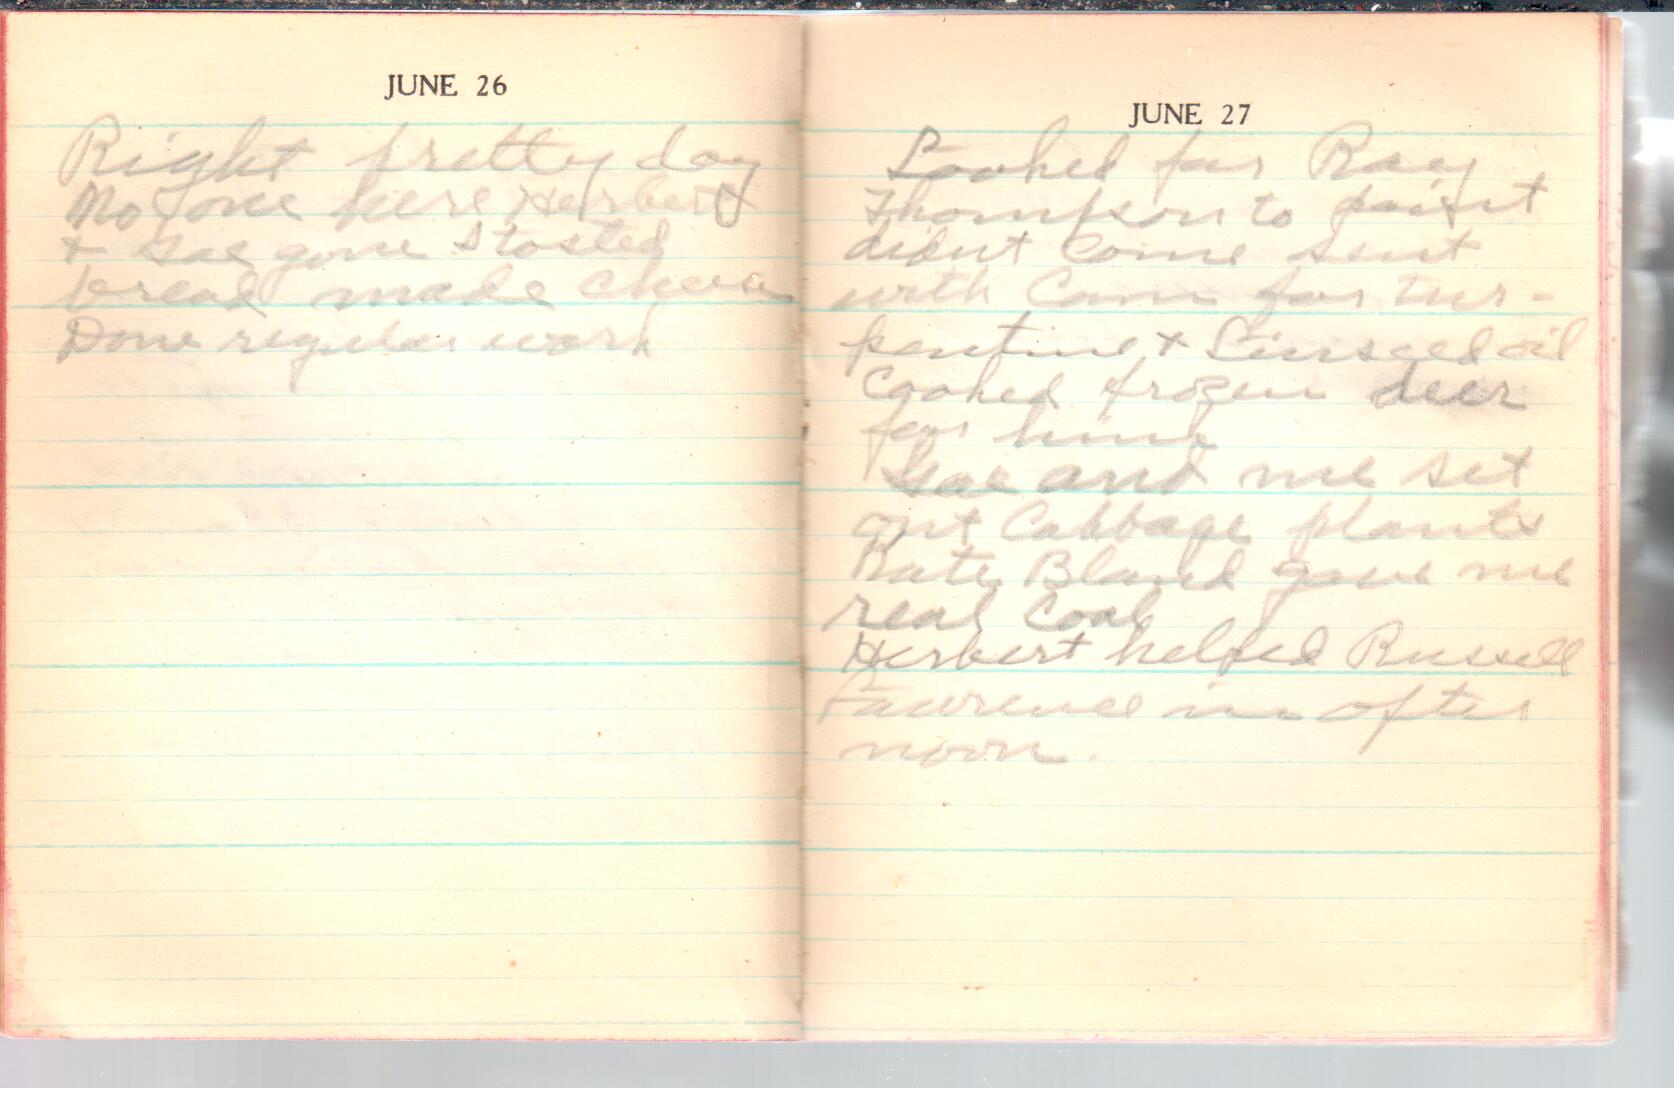 JUNE 26
Right pretty day
No one here Herbert
& Gae gone I tosted
bread made cheese
Done regular work
JUNE 27
Looked for Ray
Thompson to paint
didnt come sent
with Cam for tur-
pentine & Linseed oil
Cooked frozen deer
for him
Gae and me set
out Cabbage plants
Kate Bland gave me
real Cool
Herbert helped Russell
Lawrence in after
noon.